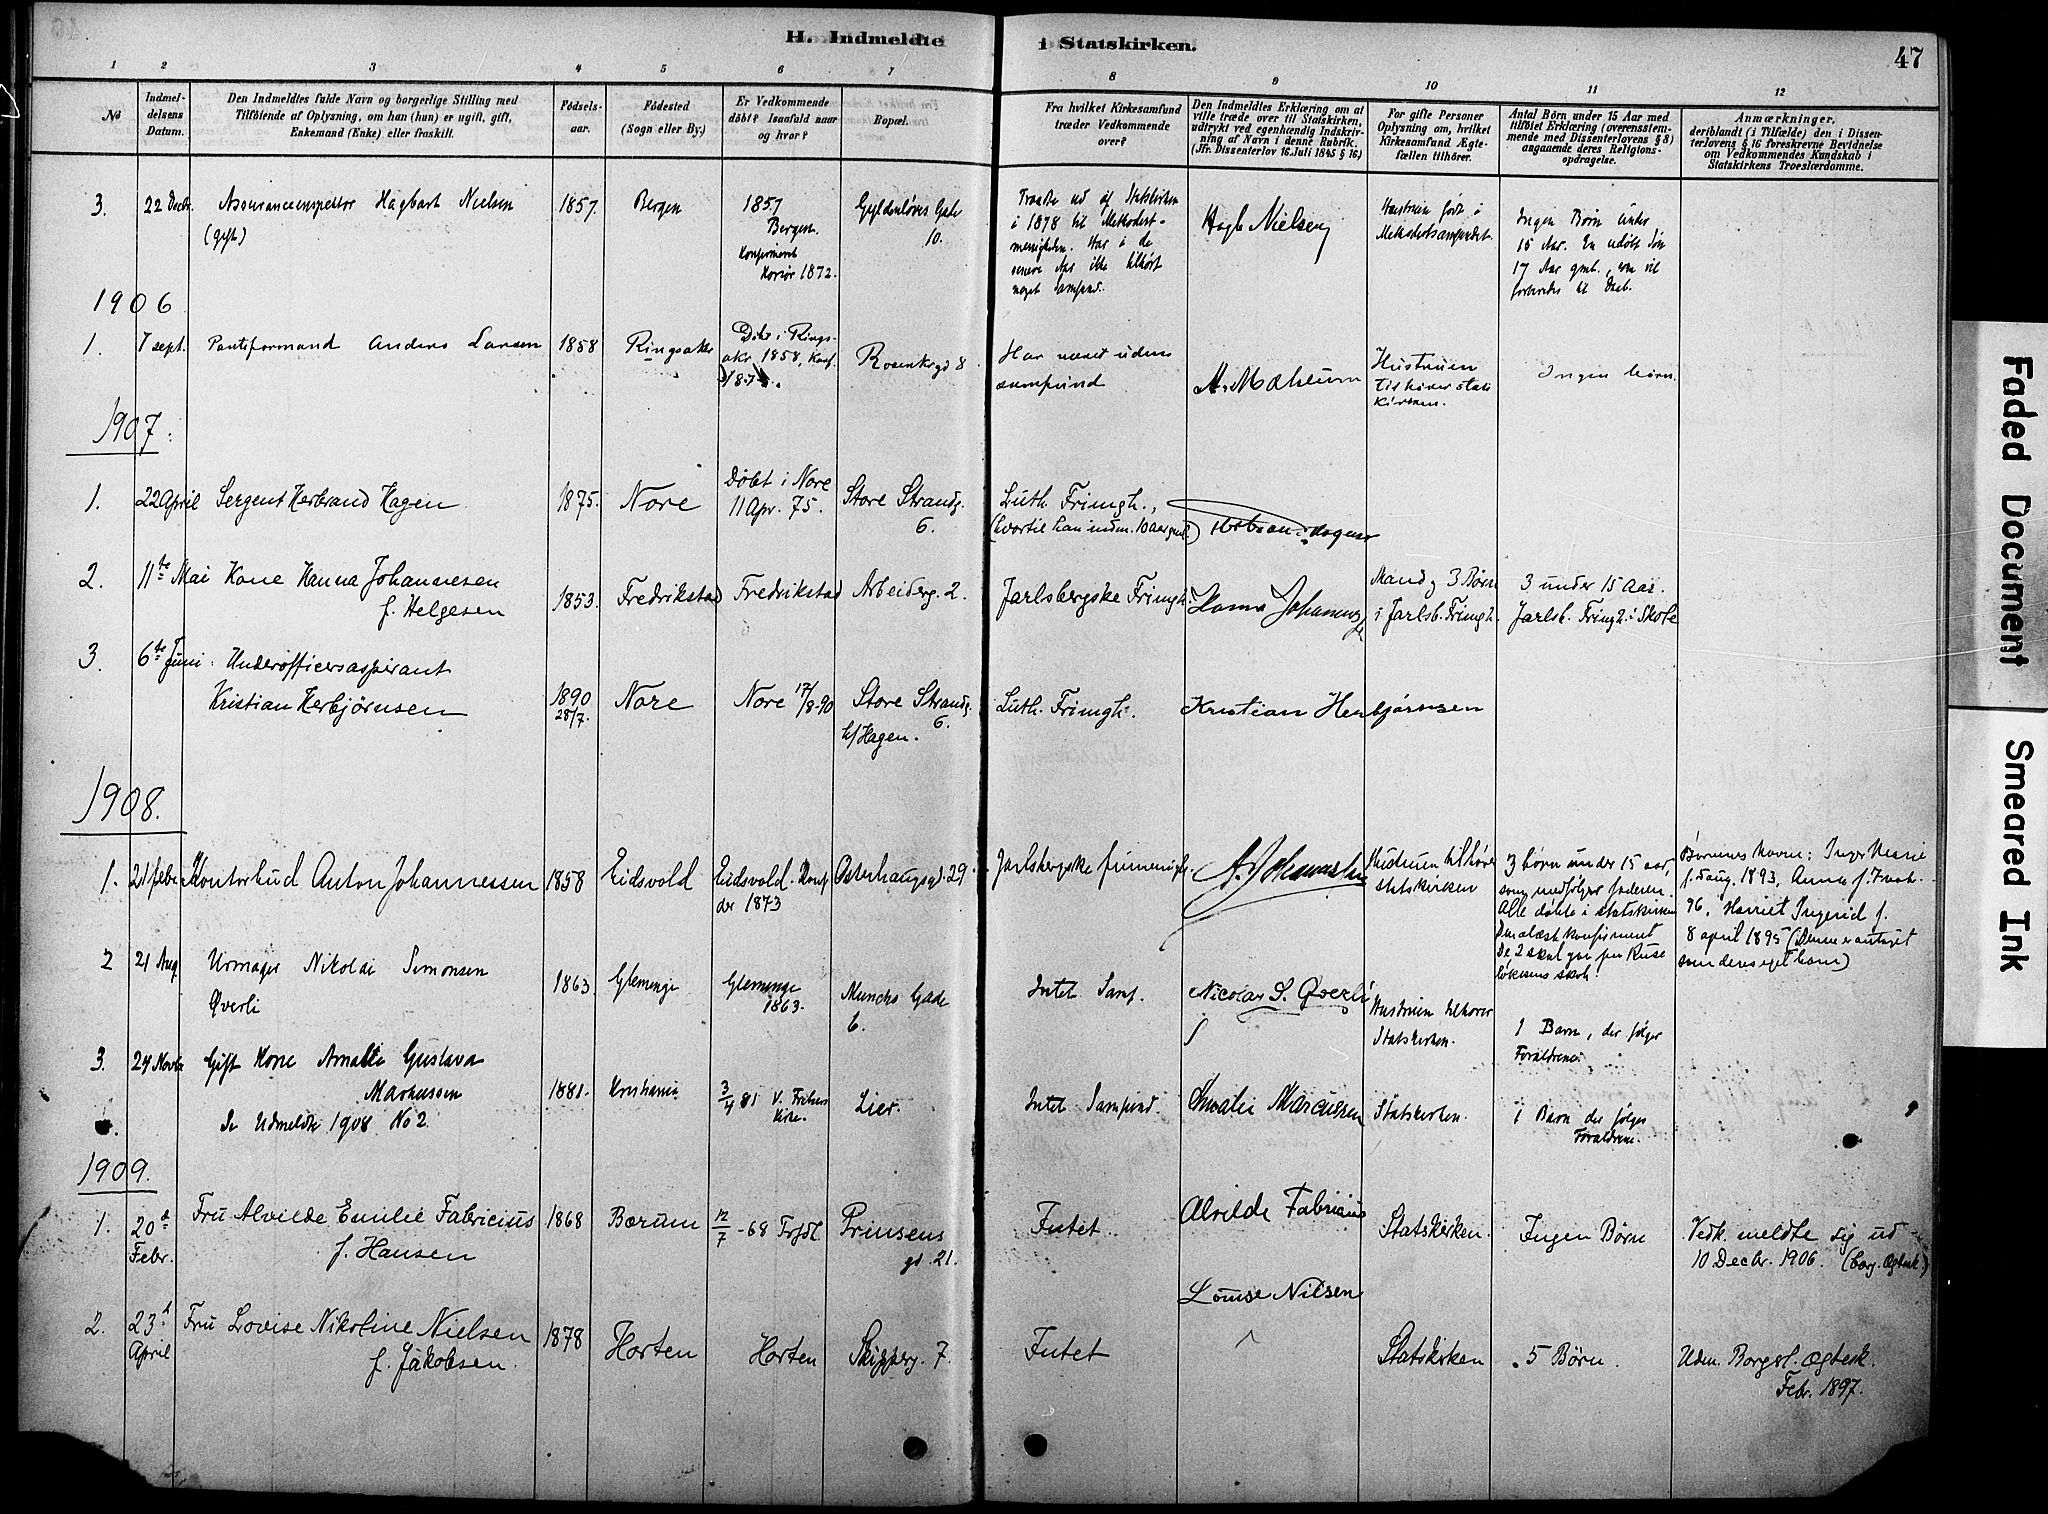 H. Indmeldte i Statskirken.
47
1 2 3 4 5 6 7 8 9 10 11 12
No
Indmel-
delsens
Datum.
Den Indmeldtes fulde Navn og borgerlige Stilling med
Tilføiende af Oplysning, om han (hun) er ugift, gift,
Enkemand (Enke) eller fraskilt.
Fødsels-
aar.
Fødested
(Sogn eller By.)
Er Vedkommende
døbt? Isaafald naar
og hvor?
Bopæl.
Fra hvilket Kirkesamfund
træder Vedkommende
over?
Den Indmeldtes Erklæring om at
ville træde over til Statskirken,
udtrykt ved egenhændig Indskriv-
ning af Navn i denne Rubrik.
(Jfr. Dissenterlov 16. Juli 1845 § 16)
For gifte Personer
Oplysning om, hvilket
Kirkesamfund Ægte-
fællen tilhører.
Antal Børn under 15 Aar med
tilføiet Erklæring (overensstem-
mende med Dissenterlovens § 8)
angaaende deres Religions-
opdragelse.
Anmærkninger,
deriblandt (i Tilfælde) den i Dissen-
terlovens § 16 foreskrevne Bevidnelse
om Vedkommendes Kundskab i
Statskirkens Troeslærdomme.
3. 22 Decbr. Assuranceinspektør Hagbart Nielsen
(gift)
1857. Bergen
1857
Bergen.
Konfirmeret
Korsør 1872.
Gyldenløves Gade
10.
Traadte ud af Statskirken
i 1878 til Methodist-
menigheden. Har i de
senere Aar ikke tilhørt
noget Samfund.
Hagb Nielsen
Hustruen født i
Methodistsamfundet.
Ingen Børn under
15 Aar. En udøbt Søn
17 Aar gml., som vil
forberedes til Daab.
1906
1. 7 sept. Anders Larsen
1858 Ringsaker
Døbt i Rings-
aker 1858, konf.
Rosenkrgd 8
Har været uden
samfund
A. Mælum
Hustruen
tilhører stats
kirken.
Ingen børn.
1907.
1. 22 April Sergent Herbrand Hagen
1875. Nore
Døbt i Nore
11 Apr. 75.
Store Strandg.
6.
Luth. Frimgh.,
(hvortil han indm. 10 aar gml.)
2. 11te Mai Kone Hanna Johannesen
f. Helgesen
1853. Fredrikstad Fredrikstad Arbeiderg. 2.
Jarlsbergske Frimgh.
Hanna Johannes
Mand og 3 Børn
i Jarlsb. Frimgh.
3 under 15 Aar.
Jarlsb. Frimgh.s Skole
3. 6te Juni Underofficersaspirant
Kristian Herbjørnsen
1890
28/7.
Nore
Nore 17/8-90
Store Strandg.
6.
h/Hagen.
Luth. Frimgh.
Kristian Herbjørnsen
1908.
1. 21 febr. Kontorbud Anton Johannessen
1858 Eidsvold
Eidsvold. Konf
der 1873
Osterhausgd. 29.
Jarlsbergske frimenigh.
A. Johannessen
Hustruen tilhører
statskirken
3 børn under 15 aar,
som medfølger faderen.
Alle døbte i statskirken
Den ældste konfirmeret
De 2 skal gaa paa Ruse
løkkens skole.
Børnenes Navn: Inger Marie
f. 5 aug. 1893, Anna f.
96, Harriet Ingerid f.
8 april 1895 (Denne er antaget
som deres eget barn)
2 21 Aug. Urmager Nikolai Simonsen
Øverli
1863. Glemminge
Glemminge
1863.
Munchs Gade
6.
Intet Samf.
Nicolay S. Øverli
Hustruen tilhører
Statskirken.
1 Barn, der følger
Forældrene.
3. 24 Novbr Gift Kone Amalie Gustava
Markussen
Se Udmeldte 1908 No 2.
1881. Kristiania
3/4 81 V. Frelsers
Kirke.
Lier.
Intet Samfund.
Amalie Marcussen
Statskirken.
1 Barn der følger
Forældrene.
1909.
1. 20d
Febr.
Fru Alvilde Emilie Fabricius
f. Hansen
1868 Bærum
12/7 -68
Prinsens
gd. 21.
Intet
Alvilde Fabricius
Statskirken.
Ingen Børn
Vedk. meldte sig ud
10 Decbr. 1906. (borg. Ægtesk.)
2. 23d
April
Fru Lovise Nikoline Nielsen
f. Jakobsen.
1878 Horten Horten Skipperg. 7.
Intet
Louise Nilsen
Statskirken
5 Børn.
Udm. Borgerl. Ægtesk.
Febr. 1897.
Faded Document
Smeared Ink